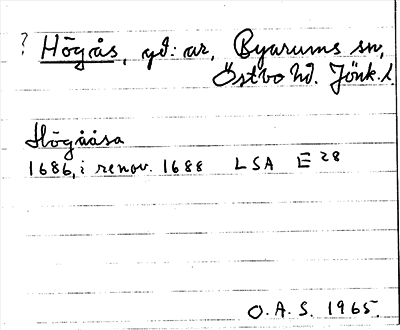 ? Högås, yd: ar, Byarums sn,
Östbo hd. Jönk. l.
Högååsa
1686, i renov. 1688 LSA E 28
O.A.S. 1965.